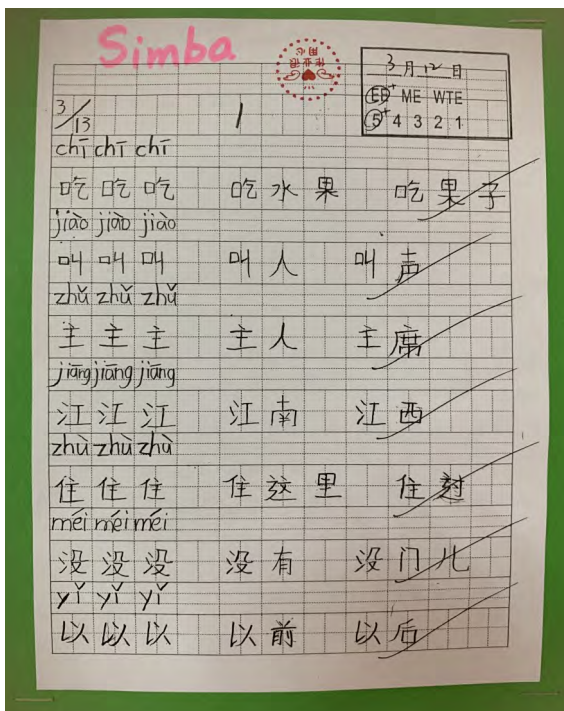 Simba
3月12日
EE+ ME WTE
5+ 4 3 2 1
3/13 1
chī chī chī
吃 吃 吃 吃水果 吃果子
jiào jiào jiào
叫 叫 叫 叫人 叫声
zhǔ zhǔ zhǔ
主 主 主 主人 主席
jiāng jiāng jiāng
江 江 江 江南 江西
zhù zhù zhù
住 住 住 住这里 住过
méi méi méi
没 没 没 没有 没门儿
yǐ yǐ yǐ
以 以 以 以前 以后